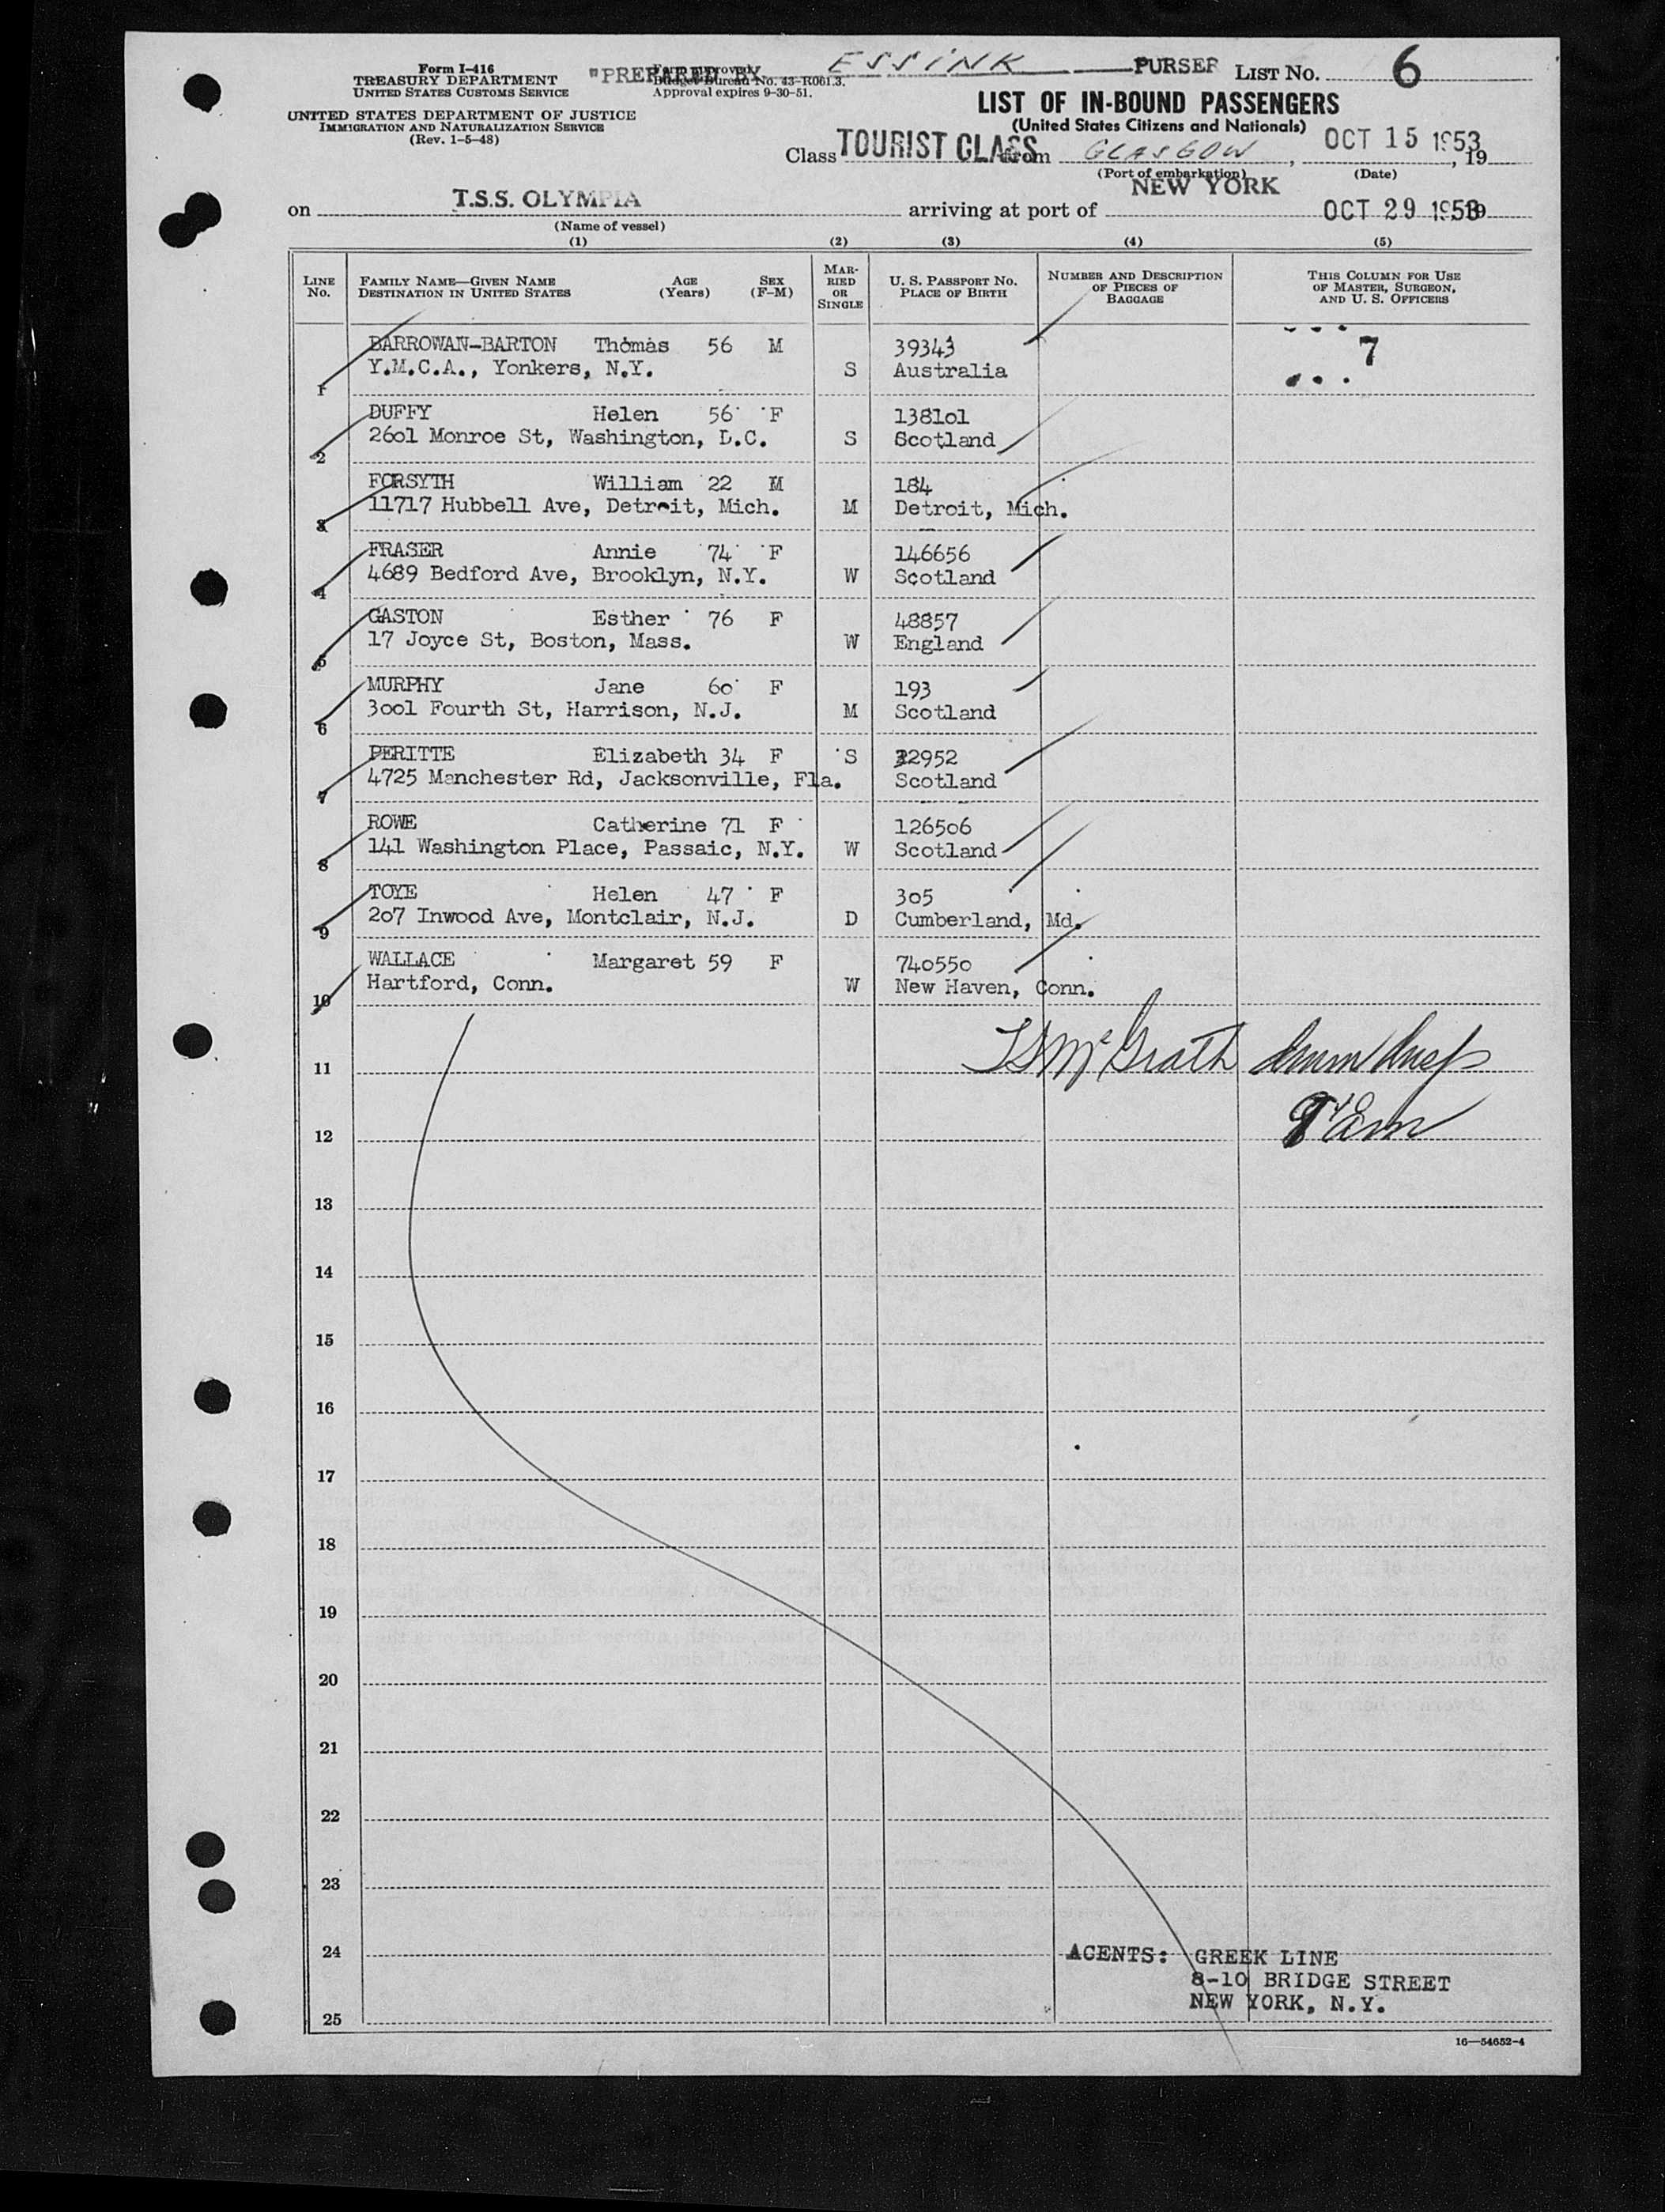 Form I-416
TREASURY DEPARTMENT
UNITED STATES CUSTOMS SERVICE
UNITED STATES DEPARTMENT OF JUSTICE
IMMIGRATION AND NATURALIZATION SERVICE
(Rev. 1-5-48)
"PREPARED BY ESSINK PURSER
Form approved.
Budget Bureau No. 43-R061.3.
Approval expires 9-30-51.
LIST NO. 6
LIST OF IN-BOUND PASSENGERS
(United States Citizens and Nationals)
Class TOURIST CLASS from GLASGOW, OCT 15 1953, 19
(Port of embarkation) (Date)
on T.S.S. OLYMPIA arriving at port of NEW YORK OCT 29 1953 19
(Name of vessel)
(1) (2) (3) (4) (5)
LINE No. FAMILY NAME—GIVEN NAME DESTINATION IN UNITED STATES AGE (Years) SEX (F-M) MARRIED OR SINGLE U. S. PASSPORT NO. PLACE OF BIRTH NUMBER AND DESCRIPTION OF PIECES OF BAGGAGE THIS COLUMN FOR USE OF MASTER, SURGEON, AND U. S. OFFICERS
BARROWAN-BARTON Thomas 56 M 39343 7
1 Y.M.C.A., Yonkers, N.Y. S Australia
DUFFY Helen 56 F 138101
2 2601 Monroe St, Washington, D.C. S Scotland
FORSYTH William 22 M 184
3 11717 Hubbell Ave, Detroit, Mich. M Detroit, Mich.
FRASER Annie 74 F 146656
4 4689 Bedford Ave, Brooklyn, N.Y. W Scotland
GASTON Esther 76 F 48857
5 17 Joyce St, Boston, Mass. W England
MURPHY Jane 60 F 193
6 3001 Fourth St, Harrison, N.J. M Scotland
PERITTE Elizabeth 34 F S 32952
7 4725 Manchester Rd, Jacksonville, Fla. Scotland
ROWE Catherine 71 F 126506
8 141 Washington Place, Passaic, N.Y. W Scotland
TOYE Helen 47 F 305
9 207 Inwood Ave, Montclair, N.J. D Cumberland, Md.
WALLACE Margaret 59 F 740550
10 Hartford, Conn. W New Haven, Conn.
11 McGrath
12
13
14
15
16
17
18
19
20
21
22
23
24 AGENTS: GREEK LINE
8-10 BRIDGE STREET
25 NEW YORK, N.Y.
16—54652-4